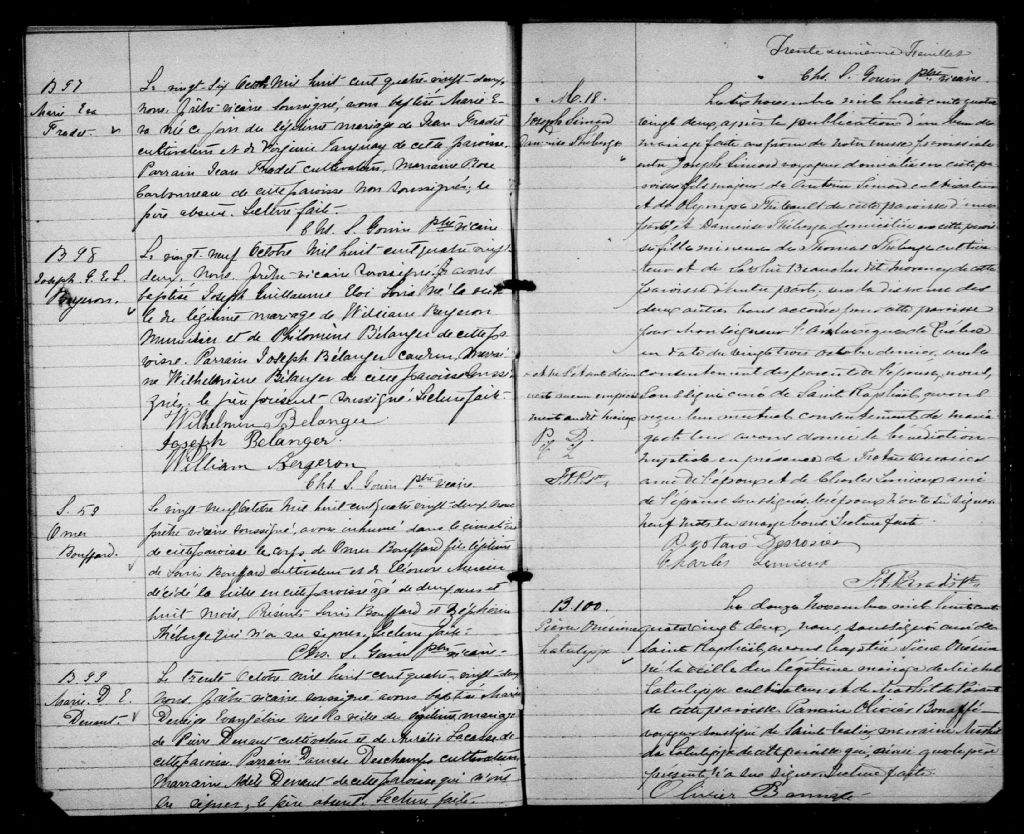 B 97
Marie Eva
Pradet
Le vingt-six Octob Mil huit cent quatre-vingt-deux,
nous, prêtre-vicaire soussigné, avons baptisé Marie E-
va née ce jour du légitime mariage de Jean Pradet
cultivateur et de Virginie Tanguay de cette paroisse.
Parrain Jean Pradet cultivateur, Marraine Rose
Carbonneau de cette paroisse non soussignés; le
père absent. Lecture faite.
Chs. S. Gouin Ptre vicaire
B 98
Joseph G. E. L.
Le vingt neuf Octobre Mil huit cent quatre vingt
deux, Nous, prêtre-vicaire soussigné, avons
baptisé Joseph Guillaume Eloi Louis né la veil-
le du légitime mariage de William
et de Philomène Bélanger de cette pa-
roisse. Parrain Joseph Bélanger Marrai-
ne Wilhelmine Bélanger de cette paroisse
le père présent soussigné. Lecture faite.
Wilhelmin Belanger
Joseph Belanger
William Bergeron
Chs. S. Gouin ptre vicaire
S. 59
Omer
Bouffard.
Le vingt neuf Octobre mil huit cent quatre vingt-deux nous
prêtre vicaire soussigné, avons inhumé dans le cimetière
de cette paroisse le corps de Omer Bouffard fils légitime
de Louis Bouffard cultivateur et de Eléonore Mercier
décédé la veille en cette paroisse âgé de deux ans et
huit mois. Présents Louis Bouffard et Zéphirin
Théberge qui n'a su signer, Lecture faite.
Chs. S. Gouin ptre vicaire
B 99
Marie. D. E.
Le trente Octobre mil huit cent quatre-vingt-deux
nous prêtre vicaire soussigné avons baptisé Marie
Evangéline née la veille du légitime mariage
de Pierre cultivateur et de Aurélie Lacasse de
cette paroisse. Parrain Deschamps cultivateur
Marraine Adèle de cette paroisse qui n'ont
su signer, le père absent. Lecture faite.
Trente unième Feuillet
Chs. S. Gouin Ptre vicaire
M. 18.
Joseph Simard
Théberge
Le six novembre mil huit cent quatre
vingt deux, après la publication d'un ban de
mariage faite au prône de notre messe paroissiale
entre Joseph Simard domicilié en cette pa-
roisse fils majeur de Simard cultivateur
et de Olympe Thibault de cette paroisse d'une
part; et Théberge domiciliée en cette parois-
se fille mineure de Thomas Théberge cultiva-
teur et de Beaucher dit Morency de cette
paroisse d'autre part. vu la dispense des
deux autres bans accordée pour cette paroisse
par Monseigneur l'archevêque de Québec
en date du vingt trois octobre dernier, vu le
consentement des parents de l'épouse, nous,
soussigné curé de Saint Raphaël, avons
reçu leur mutuel consentement de maria-
ge et leur avons donné la bénédiction
nuptiale en présence de Desrosiers
ami de l'époux et de Charles Lemieux ami
de l'épouse soussignés. les époux n'ont su signer.
neuf mots en marge bons Lecture faite.
et ne s'étant décou-
vert aucun empêche-
ment au dit mariage
Desrosiers
Charles Lemieux
B. 100.
Pierre Onésime
Latulippe
Le douze Novembre mil huit cent
quatre vingt deux, nous, soussigné curé de
Saint Raphaël, avons baptisé Pierre Onésime
né la veille du légitime mariage de Michel
Latulippe cultivateur et de
de cette paroisse. Parrain Olivier
de Saint marraine
Latulippe de cette paroisse qui, ainsi que le père
présent, n'a su signer. Lecture faite.
Olivier